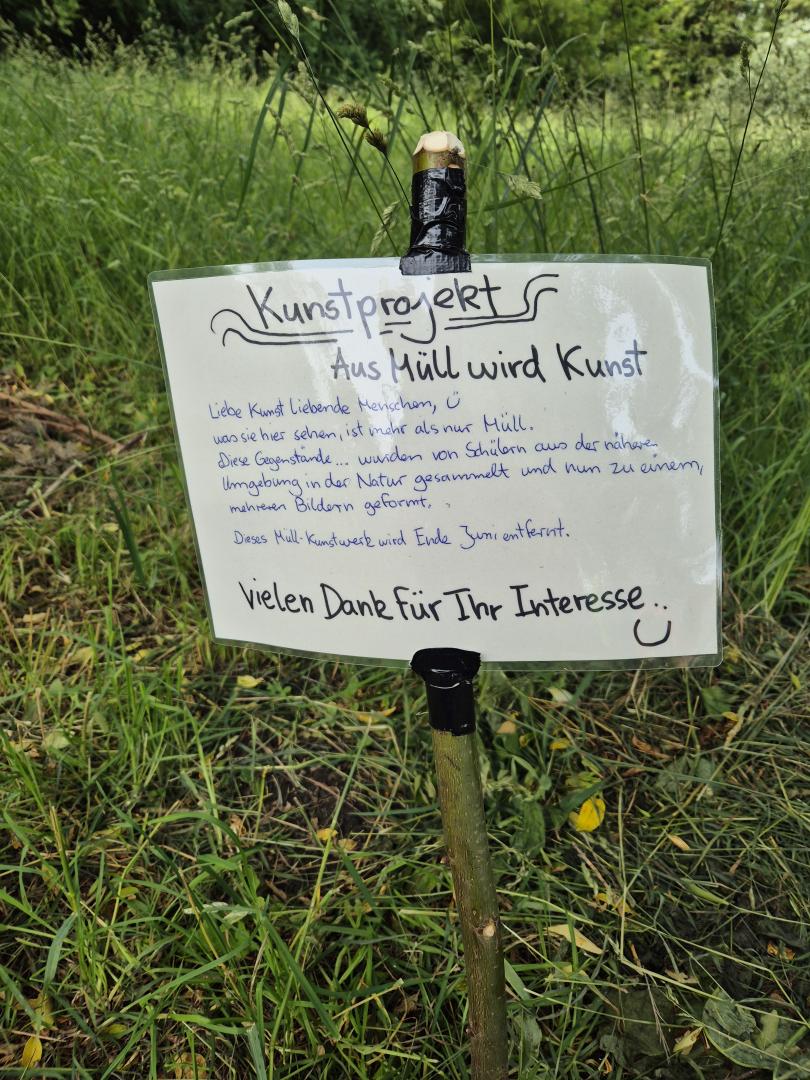 Kunstprojekt
Aus Müll wird Kunst
Liebe Kunst liebende Menschen, Ü
was sie hier sehen, ist mehr als nur Müll.
Diese Gegenstände... wurden von Schülern aus der näheren
Umgebung in der Natur gesammelt und nun zu einem,
mehreren Bildern geformt.
Dieses Müll-Kunstwerk wird Ende Juni entfernt.
Vielen Dank für Ihr Interesse Ü